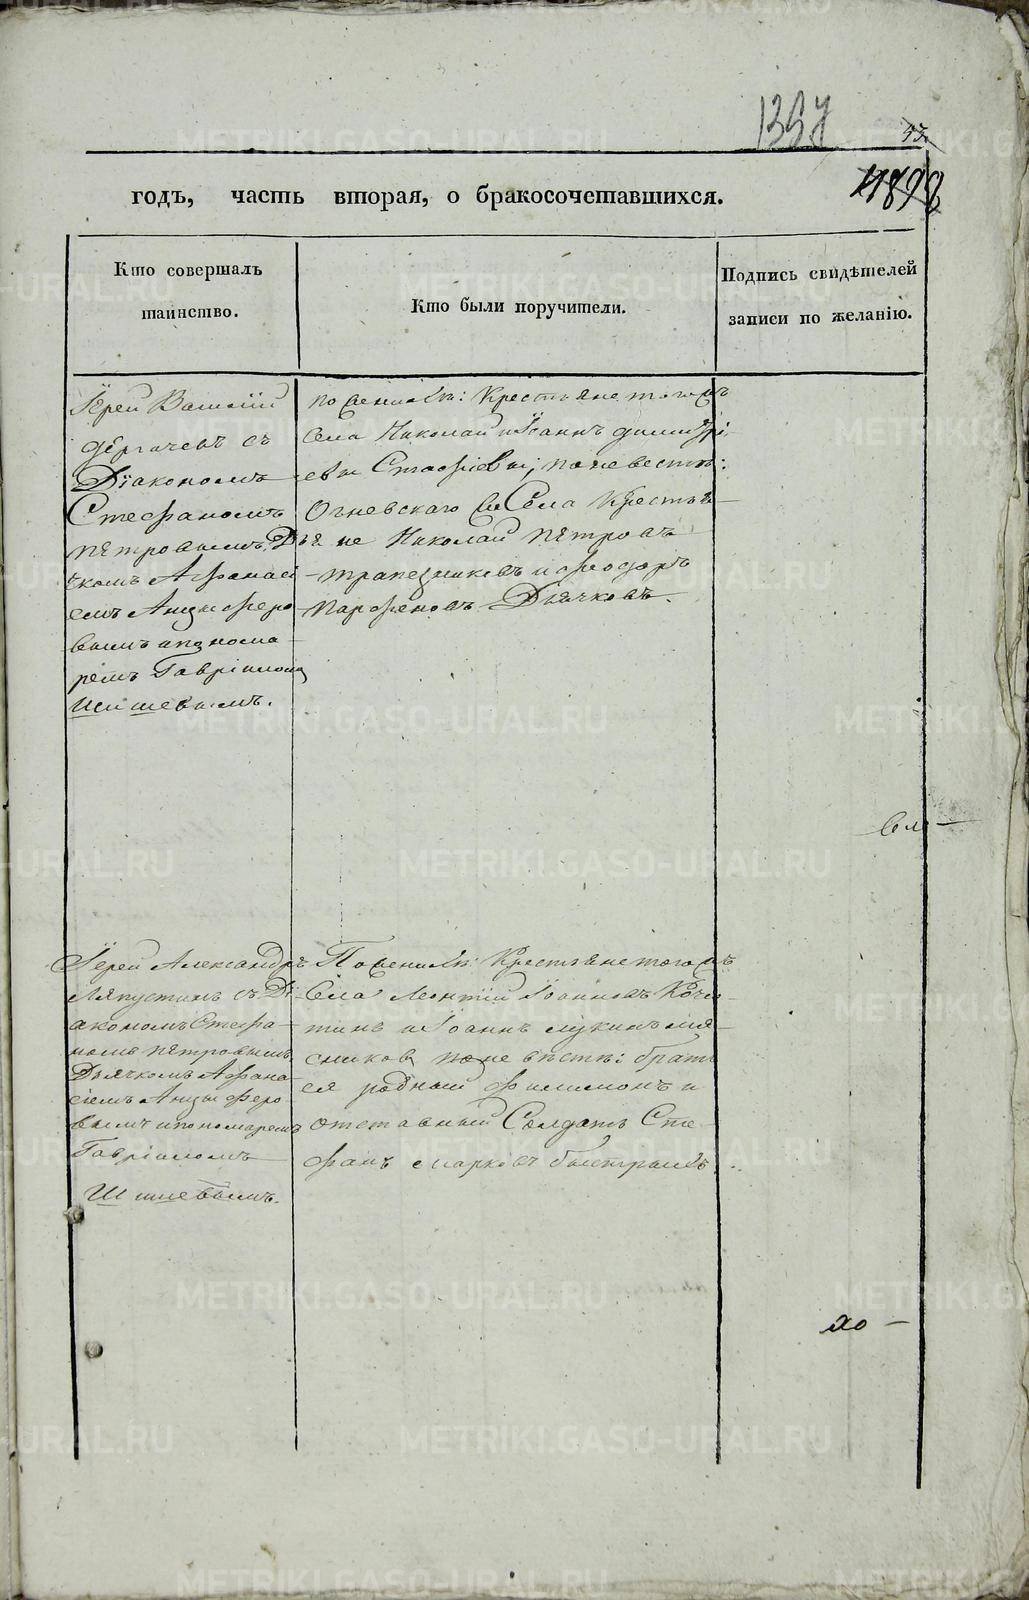 1357
43.
1898
годъ, часть вторая, о бракосочетавшихся.
Кто совершалъ
таинство.
Кто были поручители.
Подпись свидѣтелей
записи по желанію.
Іерей Василій
Дергачевъ съ
Діакономъ
Стефаномъ
Петровымъ, Дья
чкомъ Афанасі
емъ Анциферо
вымъ и понома
ремъ Гавріиломъ
Шишевымъ.
по женихѣ: Крестьяне того жъ
Села Николай и Іоаннъ Димитрі
евы Стафіевы; по невестѣ:
Огневскаго Села Крестья
не Николай Петровъ
Трапезниковъ и Феодоръ
Парфеновъ Дьячковъ.
Іерей Александръ
Ляпустинъ съ Ді
акономъ Стефа
номъ Петровымъ
Дьячкомъ Афана
сіемъ Анциферо
вымъ и пономаремъ
Гавріиломъ
Шишевымъ.
По женихѣ: Крестьяне того жъ
Села Леонтій Іоанновъ
и Іоаннъ Лукинъ Мя
сников по невѣстѣ: братъ
ея родный Филимонъ и
отставный Солдатъ Сте
фанъ Марковъ
хо
METRIKI.GASO-URAL.RU